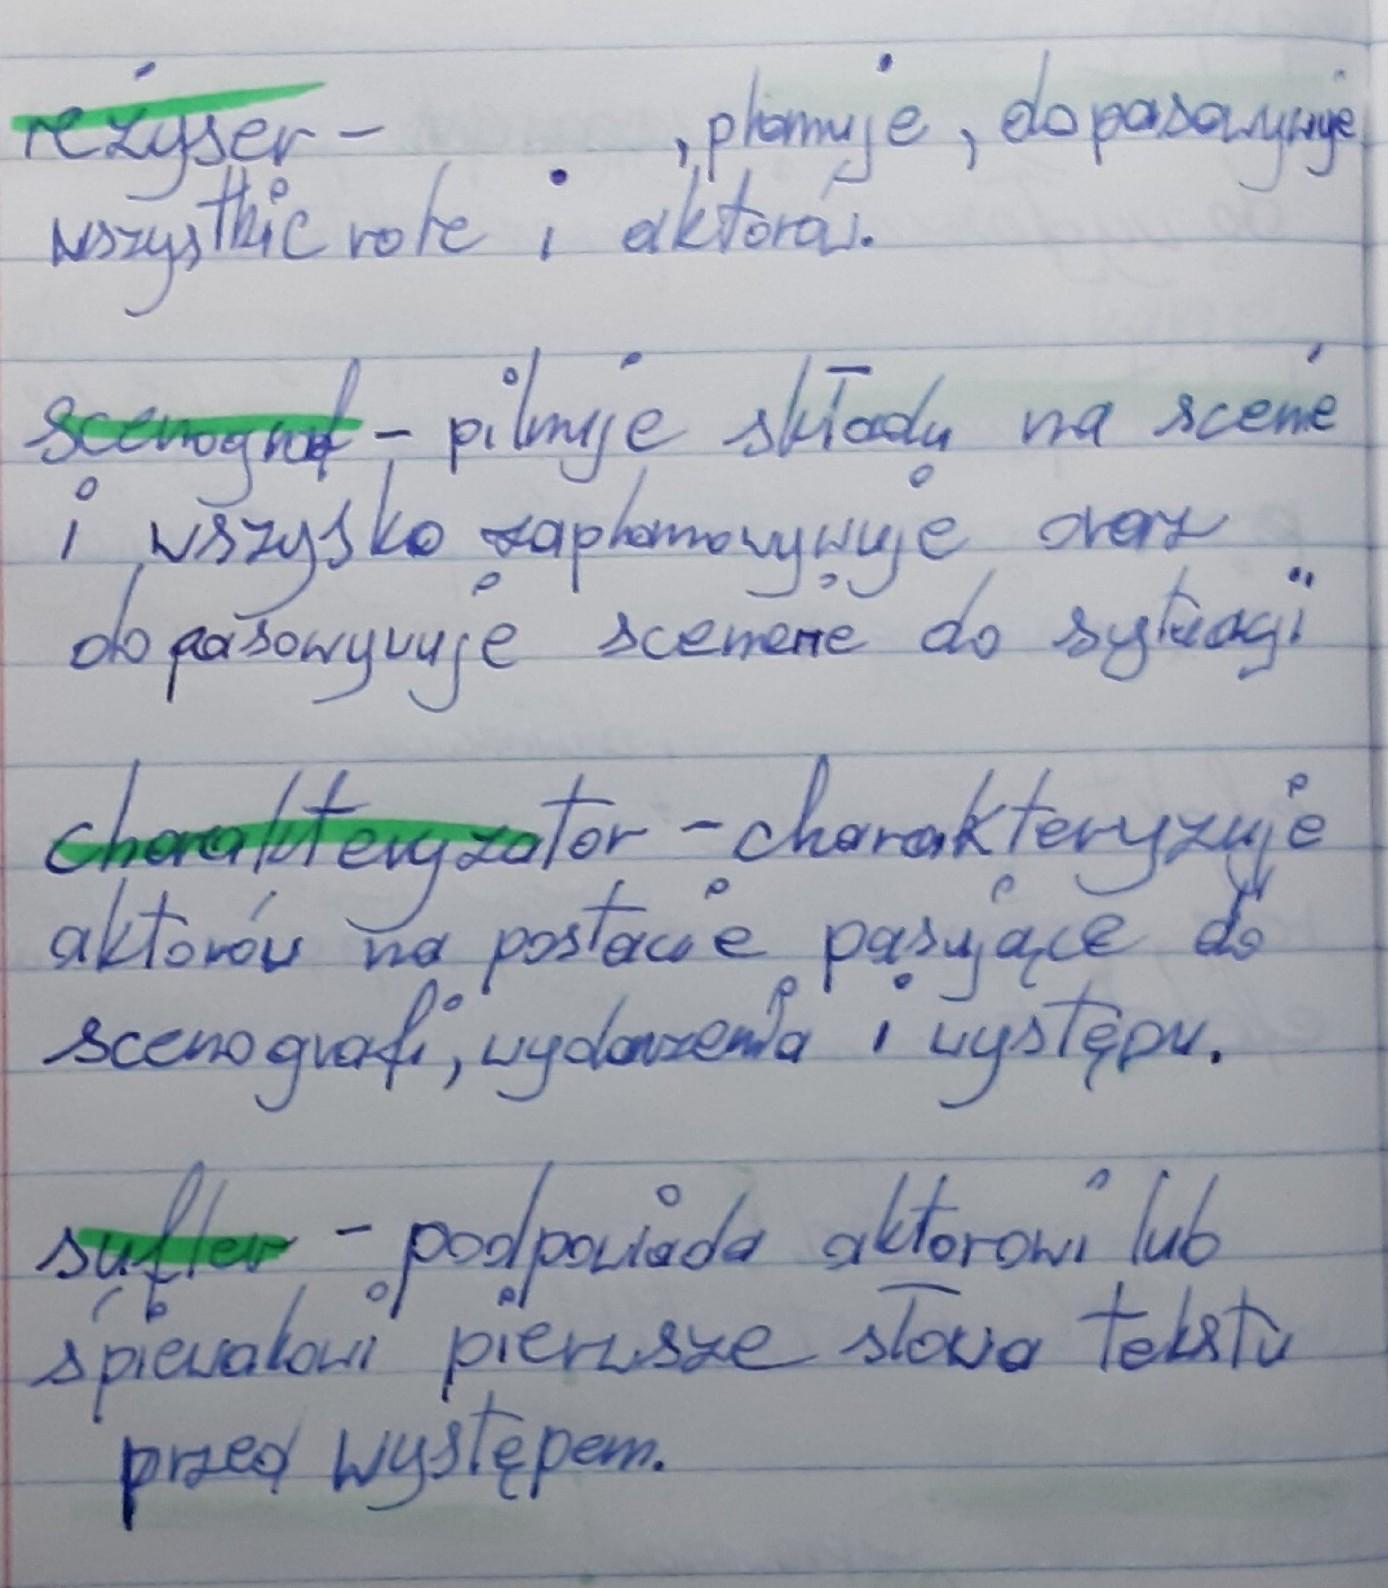 reżyser - , planuje, dopasowywuje
wszystkie role i aktorów.
scenograf - pilnuje składu na scenie
i wszysko zaplanowywuje oraz
dopasowywuje scenerie do sytuacji
charakteryzator - charakteryzuje
aktorów na postacie pasujące do
scenografi, wydarzenia i występu.
sufler - podpowiada aktorowi lub
śpiewakowi pierwsze słowa tekstu
przed występem.